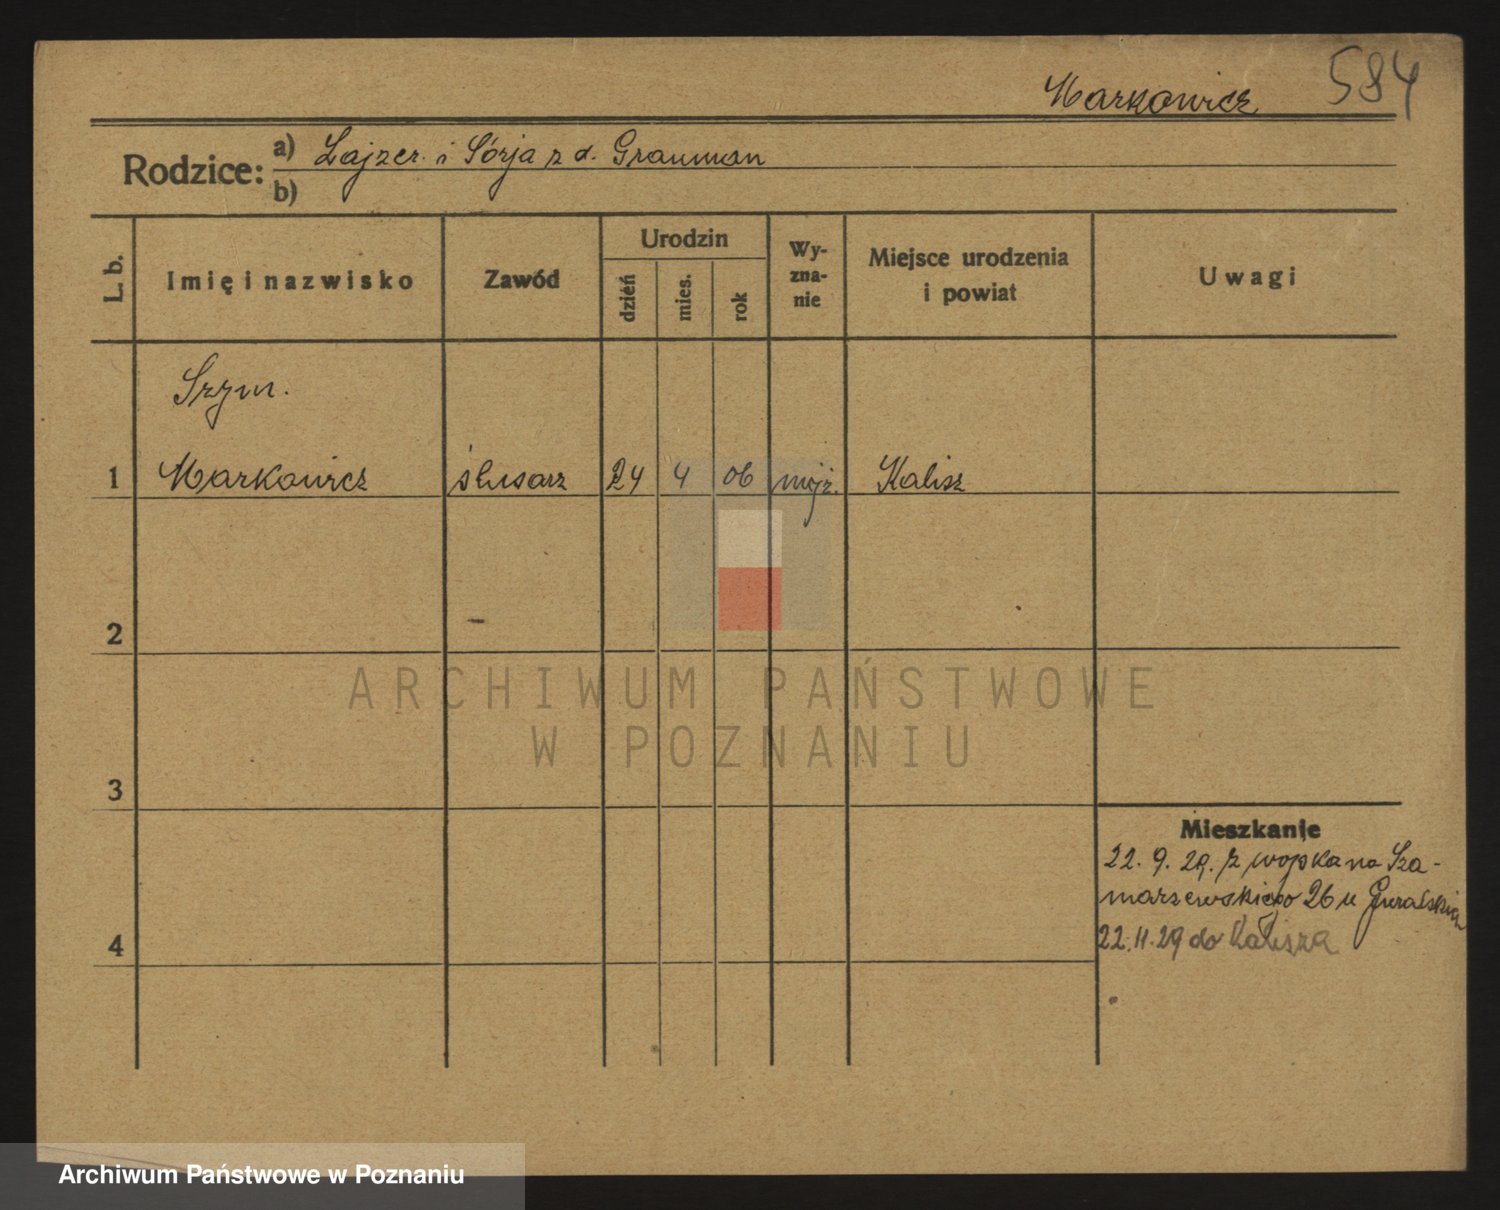 Markowicz 584
Rodzice: a) Lajzer. i Sórja z d. Grauman
b)
L. b. Imię i nazwisko Zawód Urodzin dzień mies. rok Wyzna-nie Miejsce urodzenia i powiat Uwagi
Szym.
1 Markowicz ślusarz 24 4 06 mojż. Kalisz
2
3
Mieszkanie
22. 9. 29. z wojska na Sza-
marzewskiego 26 u
4 22.11.29 do Kalisza
ARCHIWUM PAŃSTWOWE
W POZNANIU
Archiwum Państwowe w Poznaniu